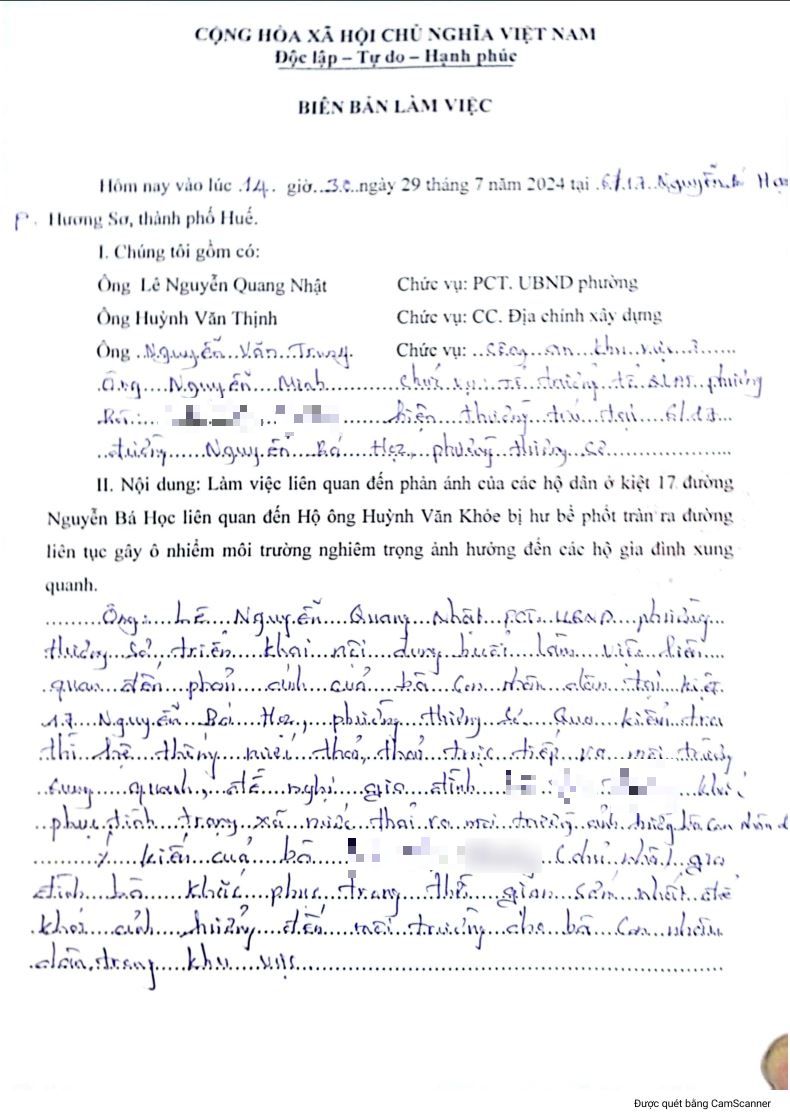 CỘNG HÒA XÃ HỘI CHỦ NGHĨA VIỆT NAM
Độc lập – Tự do – Hạnh phúc
BIÊN BẢN LÀM VIỆC
Hôm nay vào lúc 14 giờ 30 ngày 29 tháng 7 năm 2024 tại 6/17 Nguyễn Bá Học
P. Hương Sơ, thành phố Huế.
I. Chúng tôi gồm có:
Ông Lê Nguyễn Quang Nhật Chức vụ: PCT. UBND phường
Ông Huỳnh Văn Thịnh Chức vụ: CC. Địa chính xây dựng
Ông Nguyễn Văn Trung Chức vụ: công an khu vực
Ông Nguyễn Minh chức vụ: tổ trưởng tổ phường
Bà: hiện thường trú tại 6/17
đường Nguyễn Bá Học, phường Hương Sơ
II. Nội dung: Làm việc liên quan đến phản ánh của các hộ dân ở kiệt 17 đường
Nguyễn Bá Học liên quan đến Hộ ông Huỳnh Văn Khỏe bị hư bể phốt tràn ra đường
liên tục gây ô nhiễm môi trường nghiêm trọng ảnh hưởng đến các hộ gia đình xung
quanh.
Ông: Lê Nguyễn Quang Nhật PCT. UBND phường
Hương Sơ triển khai nội dung buổi làm việc liên
quan đến phản ánh của bà con nhân dân tại kiệt
17 Nguyễn Bá Học, phường Hương Sơ. Qua kiểm tra
thì hệ thống nước thải, thải trực tiếp ra môi trường
xung quanh, đề nghị gia đình khắc
phục tình trạng xả nước thải ra môi trường ảnh hưởng bà con nhân d
Ý kiến của bà (chủ nhà) gia
đình bà khắc phục trong thời gian sớm nhất để
khỏi ảnh hưởng đến môi trường cho bà con nhân
dân trong khu vực
Được quét bằng CamScanner